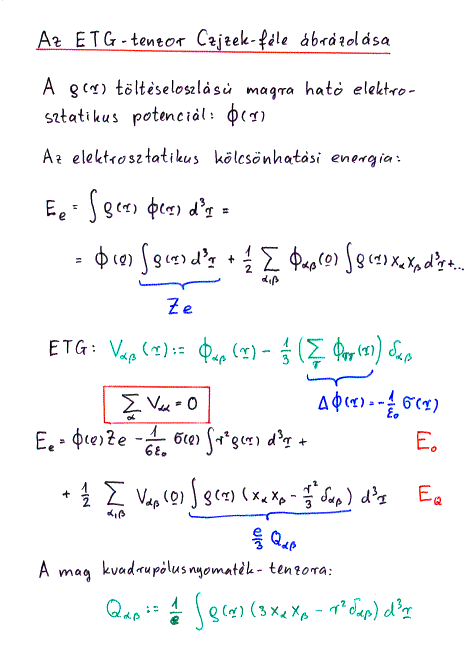 Az ETG-tenzor Czjzek-féle ábrázolása
A ρ(r) töltéseloszlású magra ható elektro-
sztatikus potenciál: ϕ(r)
Az elektrosztatikus kölcsönhatási energia:
E_e = ∫ρ(r) ϕ(r) d³r =
= ϕ(0) ∫ρ(r) d³r + 1/2 Σ_{α,β} ϕ_{αβ}(0) ∫ρ(r) x_α x_β d³r + ...
Ze
ETG: V_{αβ}(r) := ϕ_{αβ}(r) - 1/3 (Σ_γ ϕ_{γγ}(r)) δ_{αβ}
Σ_α V_{αα} = 0
Δϕ(r) = - 1/ε₀ σ(r)
E_e = ϕ(0)Ze - 1/6ε₀ σ(0) ∫r²ρ(r) d³r + E₀
+ 1/2 Σ_{α,β} V_{αβ}(0) ∫ρ(r) (x_α x_β - r²/3 δ_{αβ}) d³r E_Q
e/3 Q_{αβ}
A mag kvadrupólusnyomaték-tenzora:
Q_{αβ} := 1/e ∫ρ(r) (3x_α x_β - r² δ_{αβ}) d³r